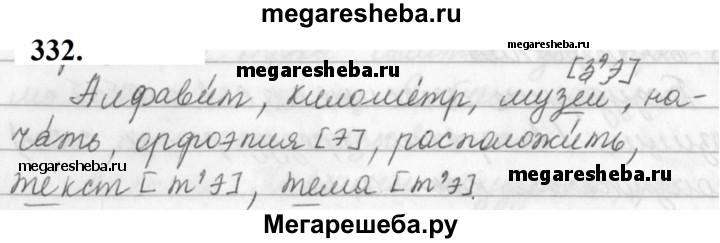 megaresheba.ru
332.
megaresheba.ru
megaresheba.ru
[з’э]
Алфави́т, киломе́тр, музеи, на-
ча́ть, орфоэпия [э], расположи́ть,
megaresheba.ru
megaresheba.ru
текст [т’э], тема [т’э].
Мегарешеба.ру